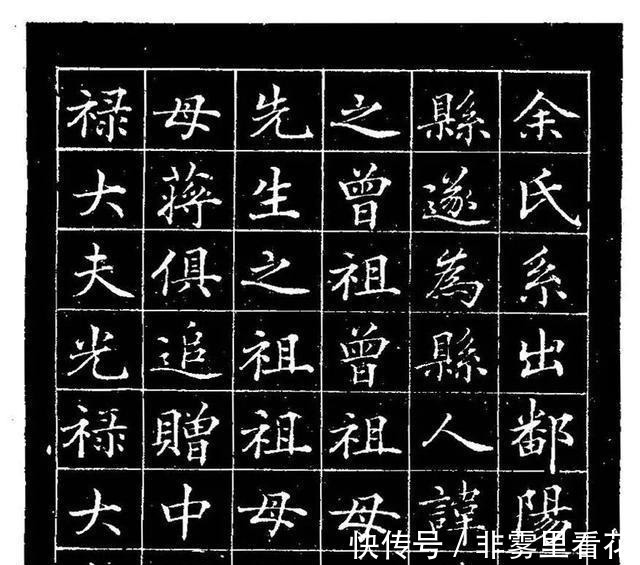 余氏系出鄱陽
縣遂為縣人諱
之曾祖曾祖母
先生之祖祖母
母蔣俱追贈中
禄大夫光禄大
快传号/非雾里看花